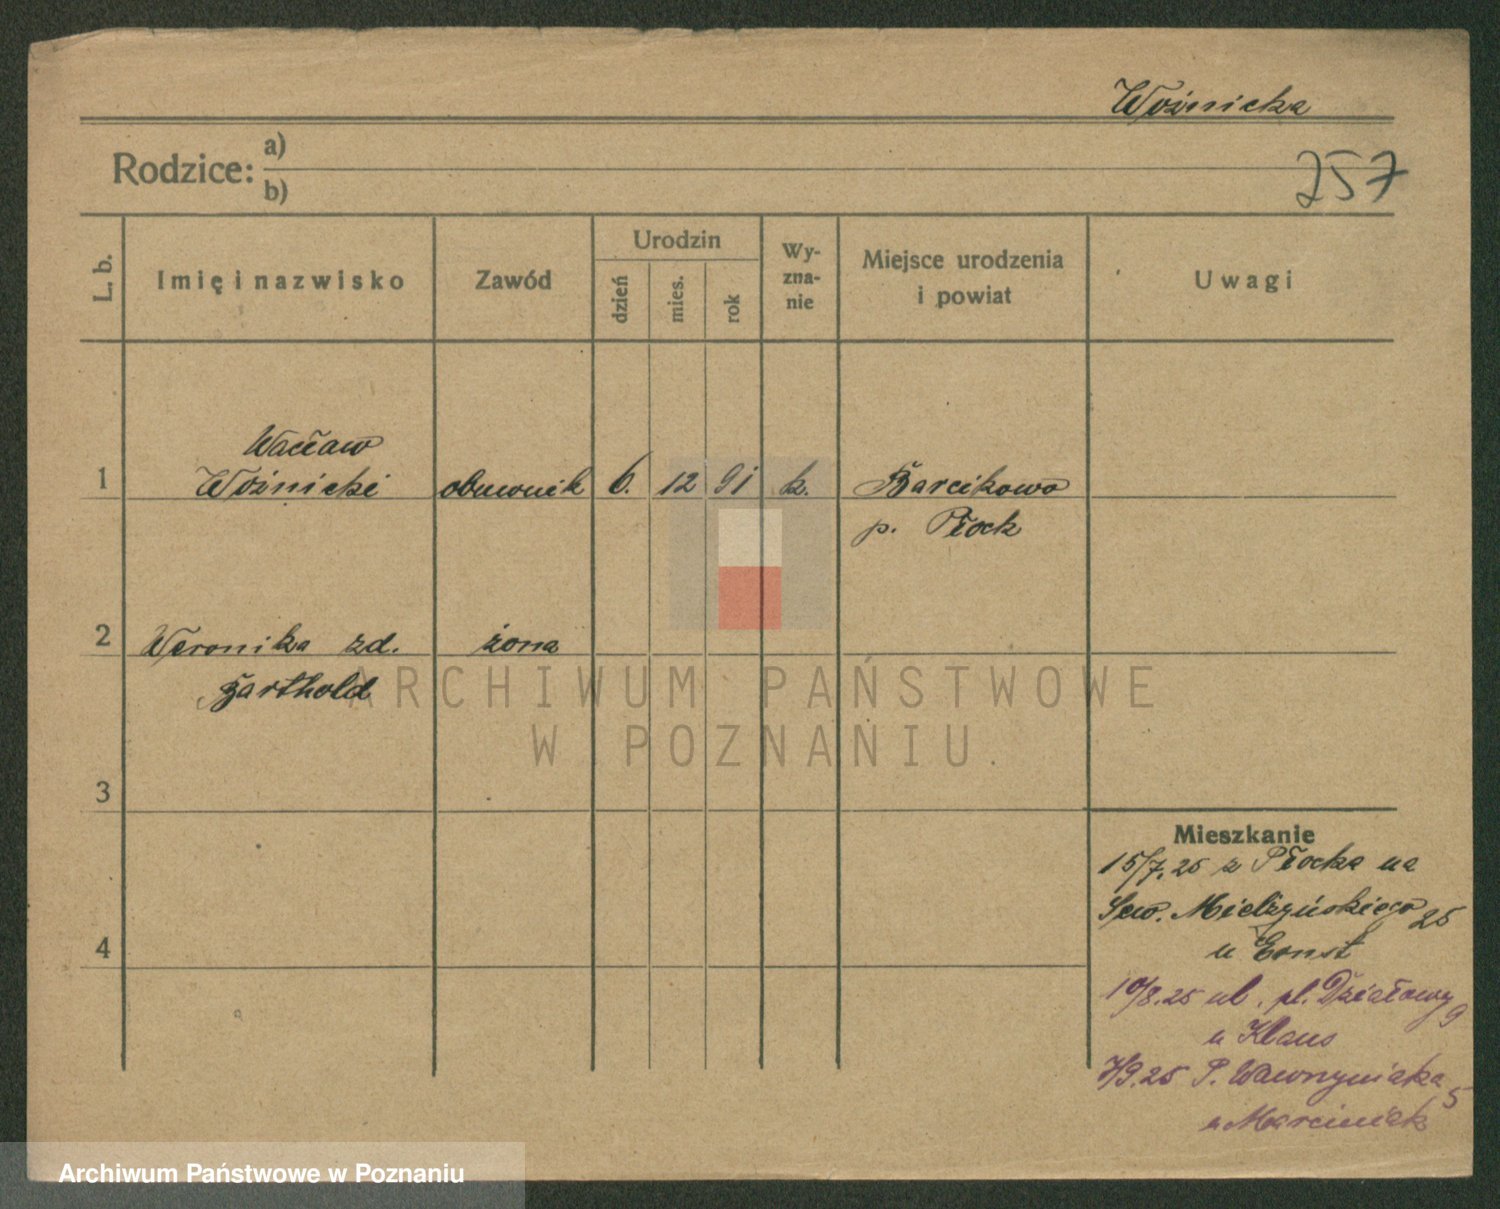 Woźnicka
Rodzice: a)
b)
257
L. b.
Imię i nazwisko
Zawód
Urodzin
dzień
mies.
rok
Wy-
zna-
nie
Miejsce urodzenia
i powiat
Uwagi
1
Wacław
Woźnicki
obuwnik
6.
12
91
k.
Barcikowo
p. Płock
2
Weronika zd.
Barthold
żona
3
4
Mieszkanie
15/7.25 z Płocka na
Sew. Mielżyńskiego 25
u Ernst
10/8.25 ul. pl. Działowy 9
u Klaus
7/9.25 P. Wawrzyniaka 5
u Marciniak
ARCHIWUM PAŃSTWOWE
W POZNANIU.
Archiwum Państwowe w Poznaniu